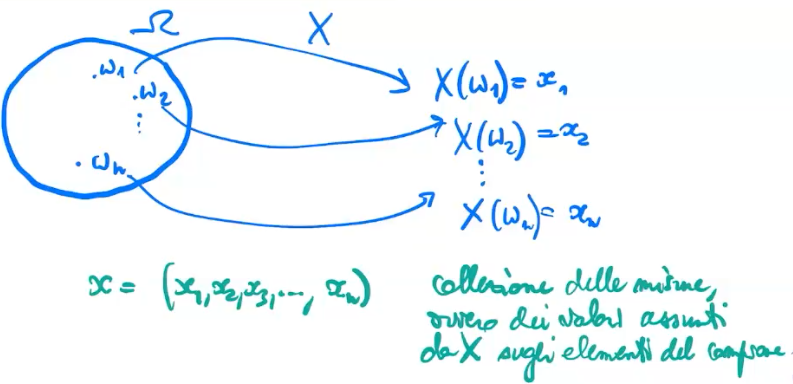 Ω X
.ω1
X(ω1) = x1
.ω2
X(ω2) = x2
⋮
⋮
.ωn
X(ωn) = xn
x = (x1, x2, x3, ..., xn)
collezione delle misure,
ovvero dei valori assunti
da X sugli elementi del campione.